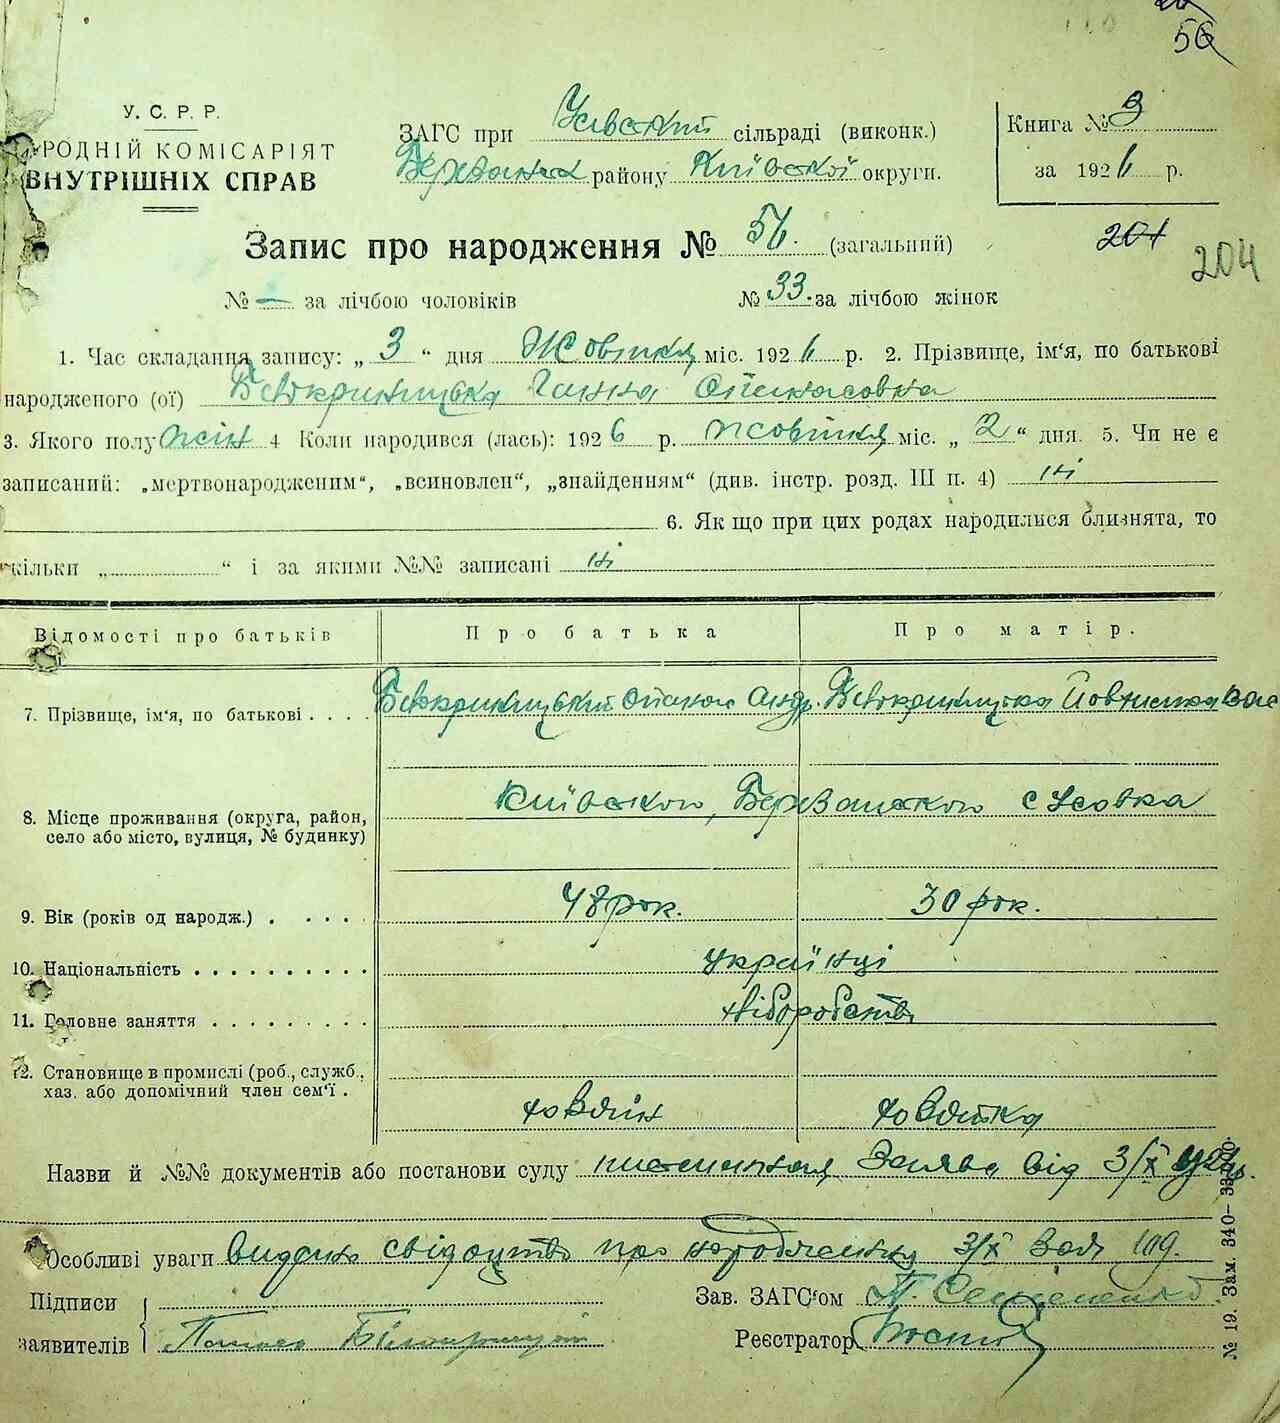 56
У. С. Р. Р.
РОДНІЙ КОМІСАРІЯТ
ВНУТРІШНІХ СПРАВ
ЗАГС при Усівській сільраді (виконк.)
району Київської округи.
Книга № 3
за 1926 р.
Запис про народження № 56. (загальний)
201 204
№ — за лічбою чоловіків № 33. за лічбою жінок
1. Час складання запису: „ 3 “ дня Жовтня міс. 1926 р. 2. Прізвище, ім‘я, по батькові
народженого (ої) Білокриницька Ганна Опанасовна
3. Якого полу жін 4 Коли народився (лась): 1926 р. жовтня міс. „ 2 “ дня. 5. Чи не є
записаний: „мертвонародженим“, „всиновлен“, „знайденням“ (див. інстр. розд. III п. 4) ні
6. Як що при цих родах народилися близнята, то
кільки „ “ і за якими №№ записані ні
Відомості про батьків Про батька Про матір.
7. Прізвище, ім‘я, по батькові . . . . Білокриницький Опанас Андр. Білокриницька Вас
8. Місце проживання (округа, район,
село або місто, вулиця, № будинку)
Київської, с Усовка
9. Вік (років од народж.) . . . . . 48 рок. 30 рок.
10. Національність . . . . . . . . . . українці
11. Головне заняття . . . . . . . . . хліборобство
12. Становище в промислі (роб., служб.,
хаз. або допомічний член сем‘ї .
хозяїн хозяйка
Назви й №№ документів або постанови суду писменная Заява від 3/X
Особливі уваги видано свідоцтво про народження 3/X 109.
Підписи
заявителів
Зав. ЗАГС‘ом
Реєстратор
№ 19. Зам. 340—